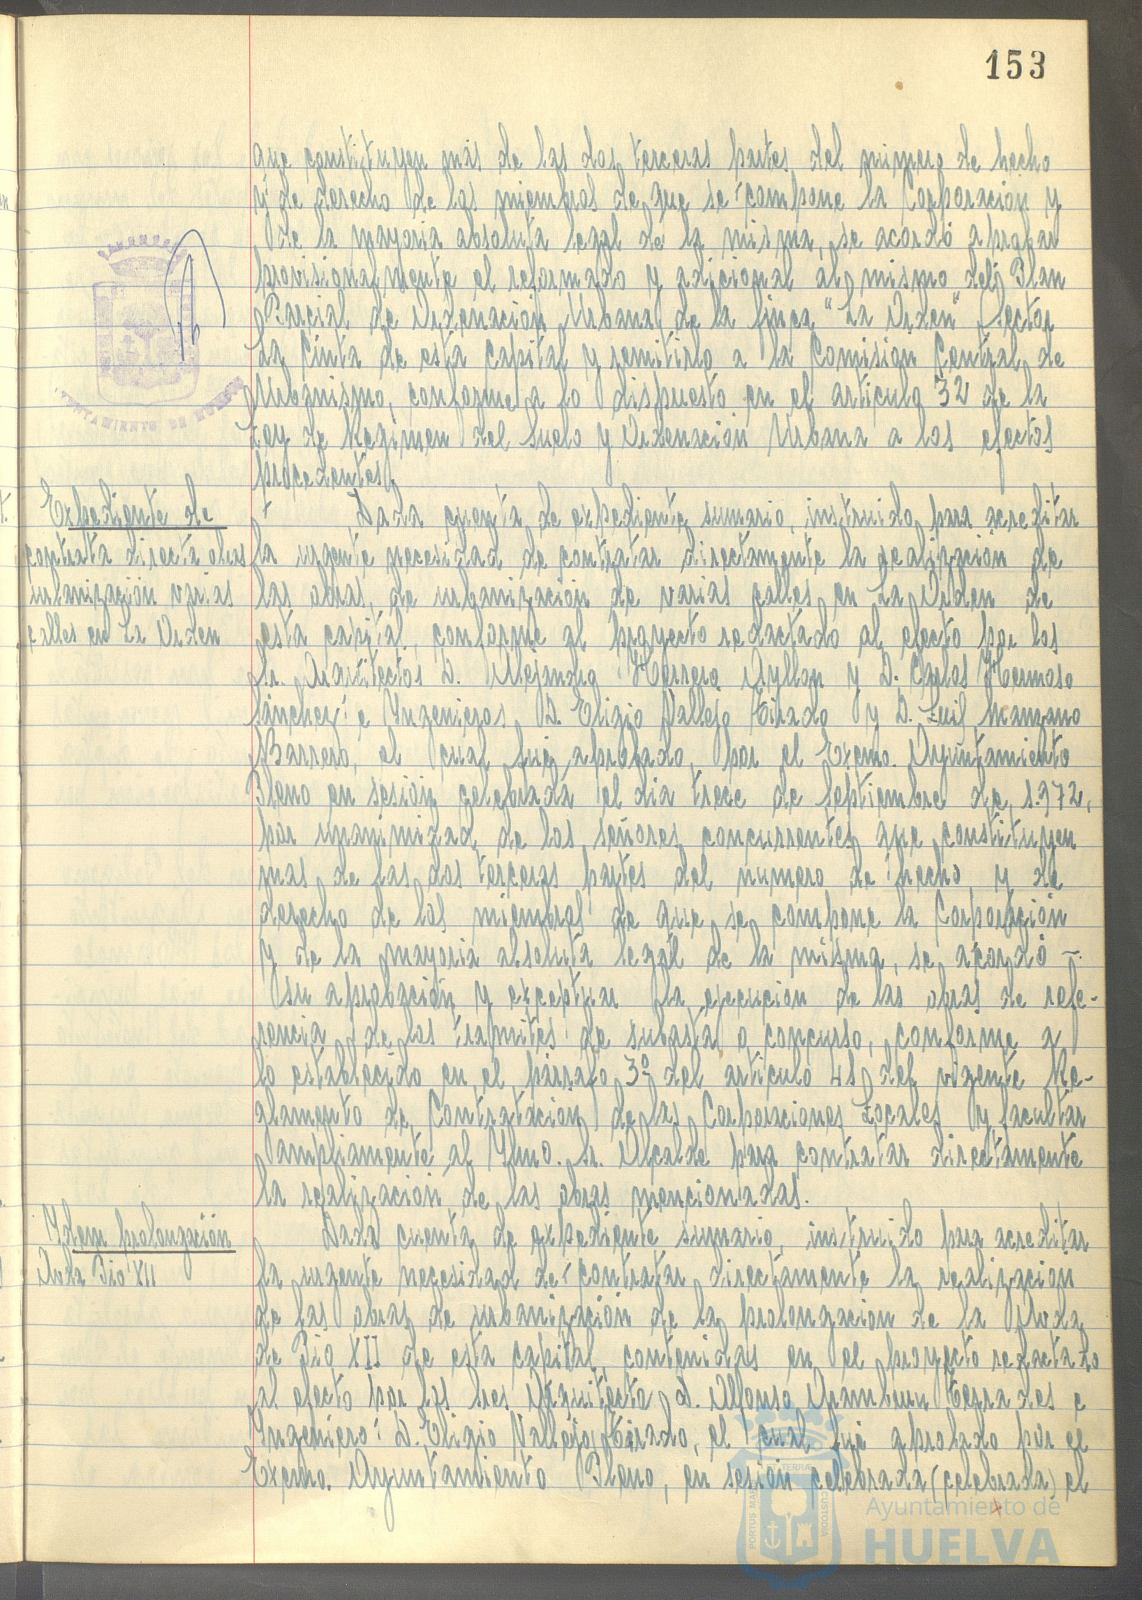 153
que constituyen más de las dos terceras partes del número de hecho
y de derecho de los miembros de que se compone la Corporación y
de la mayoria absoluta legal de la misma, se acordó aprobar
provisionalmente el reformado y adicional al mismo del Plan
Parcial de Ordenación Urbana de la finca "La Orden" Sector
La Cinta de esta Capital y remitirlo a la Comisión Central de
Urbanismo, conforme a lo dispuesto en el artículo 32 de la
Ley de Régimen del Suelo y Ordenación Urbana a los efectos
procedentes.
AYUNTAMIENTO DE HUELVA
Expediente de
contrata directa obras
urbanización varias
calles en La Orden
Dada cuenta de expediente sumario instruido para acreditar
la urgente necesidad de contratar directamente la realización de
las obras, de urbanización de varias calles en La Orden de
esta capital, conforme al proyecto redactado al efecto por los
Sr. Arquitectos D. Alejandro Herrero Ayllon y D. Carlos Hermoso
Sánchez e Ingenieros D. Eligio Vallejo Tirado y D. Luis Manzano
Barrero, el cual fué aprobado, por el Excmo. Ayuntamiento
Pleno en sesión celebrada el dia trece de Septiembre de, 1.972,
por unanimidad de los señores concurrentes que constituyen
mas de las dos terceras partes del numero de hecho y de
derecho de los miembros de que se compone la Corporación
y de la mayoria absoluta legal de la misma, se acordó -
su aprobación y exceptuar la ejecucion de las obras de refe-
rencia de los tramites de subasta o concurso, conforme a
lo establecido en el párrafo 3º del articulo 41 del vigente Re-
glamento de Contratación de las Corporaciones Locales y facultar
ampliamente al Ylmo. Sr. Alcalde para contratar directamente
la realización de las obras mencionadas.
Ydem prolongación
Avda Pio XII
Dada cuenta de expediente sumario, instruido para acreditar
la urgente necesidad de contratar directamente la realizacion
de las obras de urbanización de la prolongacion de la Avda
de Pio XII de esta capital, contenidas en el proyecto redactado
al efecto por los sres Arquitecto D. Alfonso Aramburu Terrades e
Ingeniero D. Eligio Vallejo Tirado, el cual fué aprobado por el
Excmo. Ayuntamiento Pleno, en sesión celebrada (celebrada) el
PORTUS MARIS
TERRAE
CUSTODIA
Ayuntamiento de
HUELVA